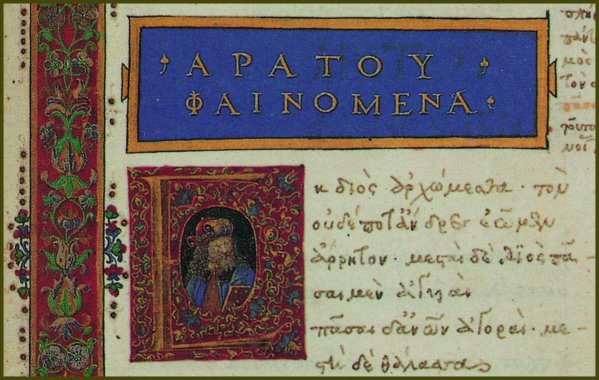 ΑΡΑΤΟΥ
ΦΑΙΝΟΜΕΝΑ
Εκ διὸς ἀρχώμεσθα· τὸν
οὐδέποτ' ἄνδρες ἐῶμεν
ἄρρητον· μεσταὶ δὲ Διὸς πᾶ
σαι μὲν ἀγυιαὶ
πᾶσαι δ' ἀνῶν ἀγοραὶ· με-
στὴ δὲ θάλασσα